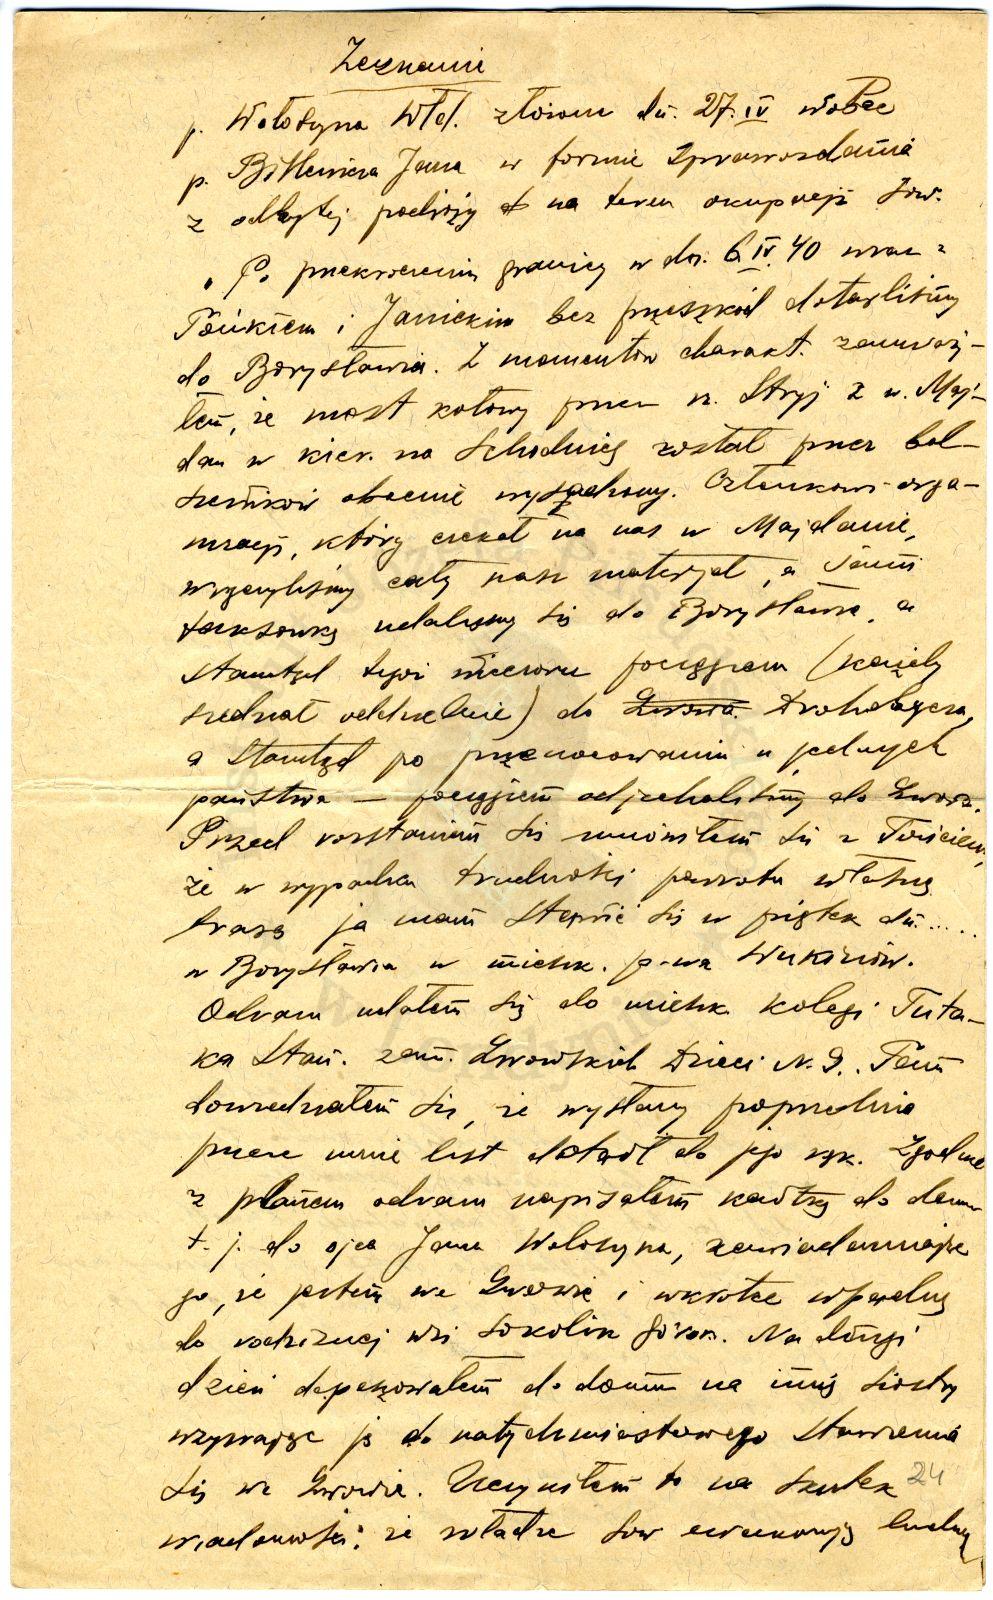 Zeznanie
p. Wołoszyna Wład. złożone dn. 27.IV wobec
p. Bitlewicza Jana w formie sprawozdania
z odbytej podróży na teren okupacji sow.
„Po przekroczeniu granicy w dn. 6.IV.40 wraz z
i Janickim bez przeszkód dotarliśmy
do Borysławia. Z momentów charakt. zauważy-
łem, że most kołowy przez rz. Stryj z w. Maj-
dan w kier. na Schodnicę został przez bol-
szewików obecnie wysadzony. Członkowi orga-
nizacji, który czekał na nas w Majdanie,
wręczyliśmy cały nasz materjał, a sami
taksówką udaliśmy się do Borysławia, a
stamtąd tegoż wieczoru pociągiem (każdy
siedział oddzielnie) do Lwowa. Drohobycza,
a stamtąd po przenocowaniu u jednych
państwa — pociągiem odjechaliśmy do Lwowa.
Przed rozstaniem się umówiłem się z
że w wypadku trudności powrotu własną
trasą ja mam stawić się w piątek dn. .....
w Borysławiu w mieszk. p-wa
Odrazu udałem się do mieszk. kolegi Tuta-
ka Stan. zam. Lwowskich Dzieci N. 9. Tam
dowiedziałem się, że wysłany poprzednio
przeze mnie list dotarł do jego rąk. Zgodnie
z planem odrazu napisałem kartkę do domu
t. j. do ojca Jana Wołoszyna, zawiadamiając
go, że jestem we Lwowie i wkrótce wpadnę
do rodzinnej wsi Sokolin góren. Na drugi
dzień depeszowałem do domu na imię siostry
wzywając ją do natychmiastowego stawienia
się we Lwowie. Uczyniłem to na skutek 24
wiadomości, że władze sow ewakuują ludną